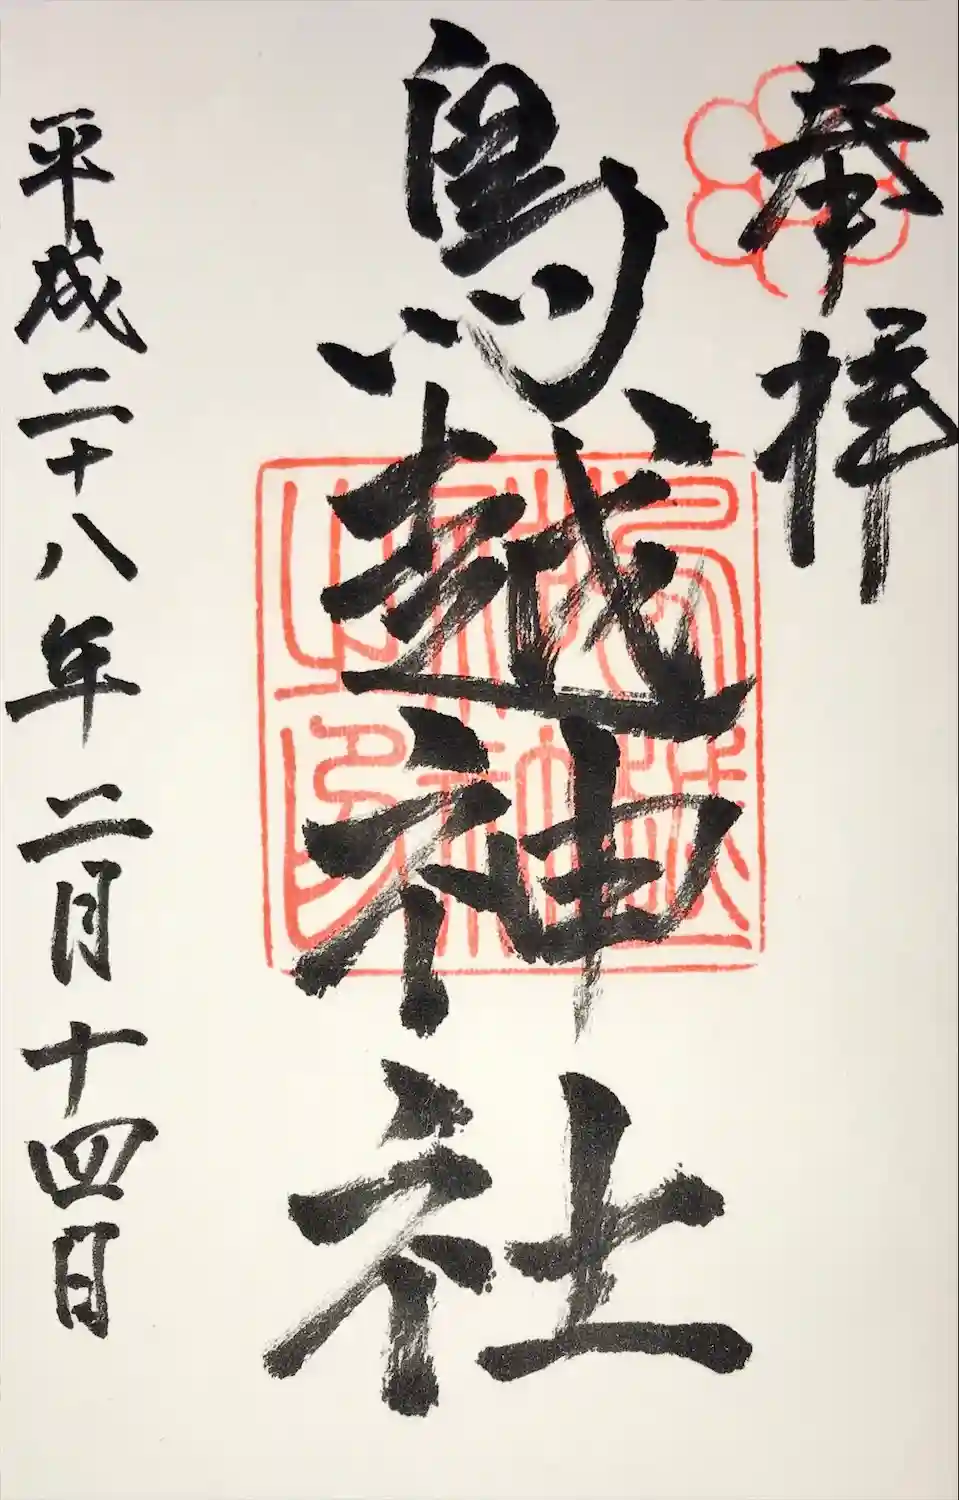 奉拝
鳥越神社
平成二十八年二月十四日
鳥越神社之印